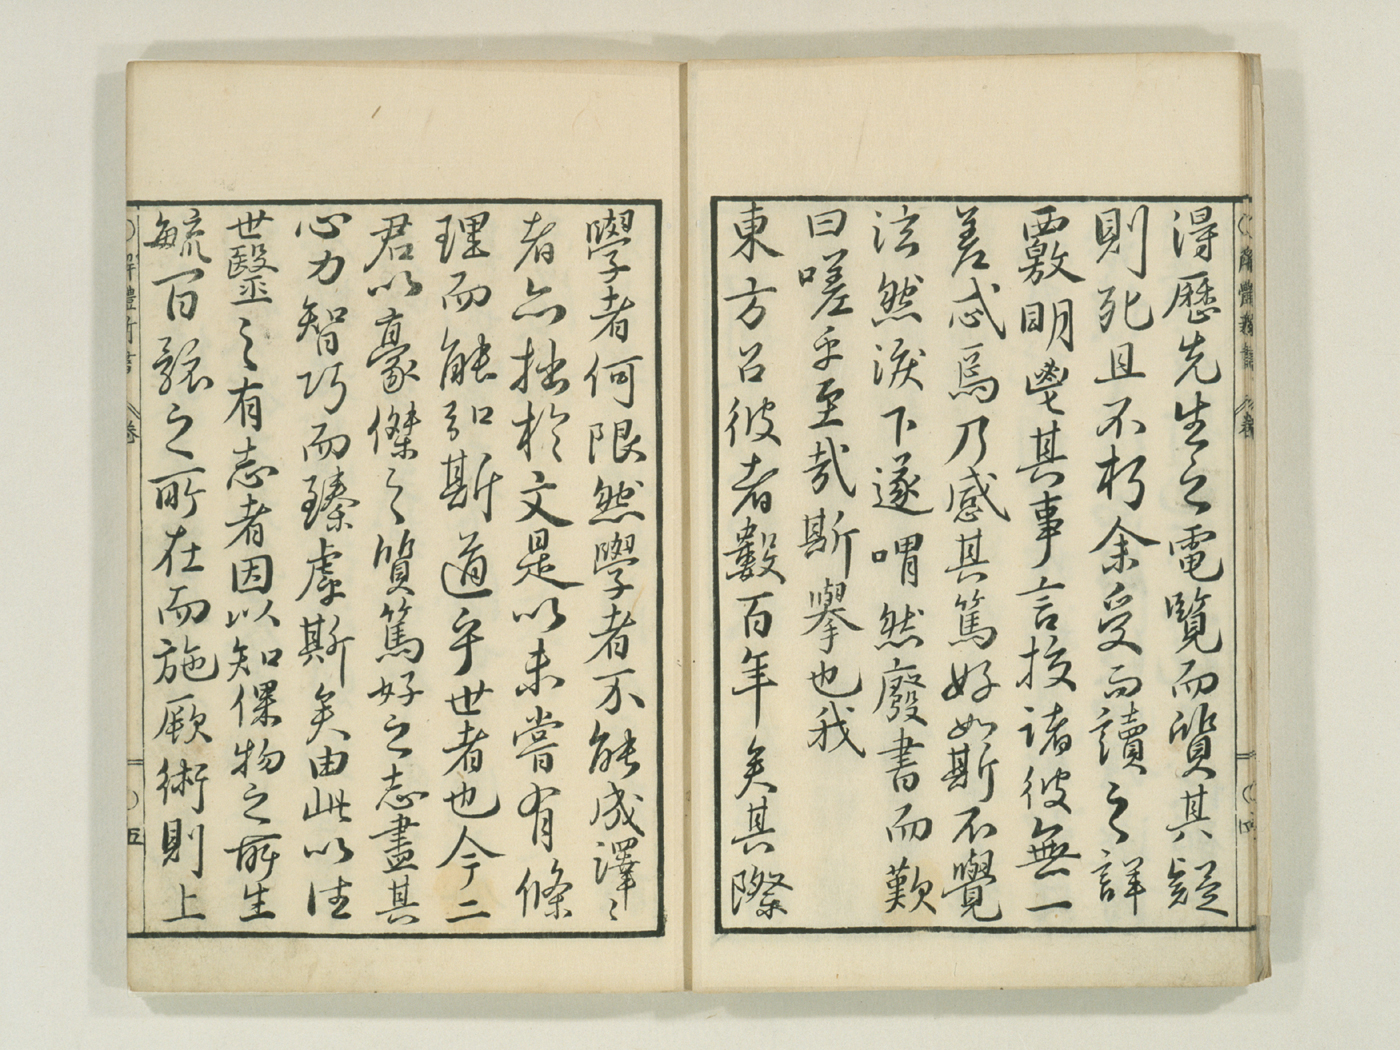 解體新書 卷 四
得歷先生之電覽而質其疑
則死且不朽余受而讀之詳
覈明鬯其事言校諸彼無一
差忒焉乃感其篤好如斯不覺
泫然淚下遂喟然廢書而歎
曰嗟乎至哉斯擧也我
東方彼者數百年矣其際
學者何限然學者不能成譯〻
者亦拙於文是以未嘗有條
理而能弘斯道乎世者也今二
君以豪傑之質篤好之志盡其
心力智巧而臻虖斯矣由此以往
世醫之有志者因以知倮物之所生
毓百骸之所在而施厥術則上
解體新書 卷 五